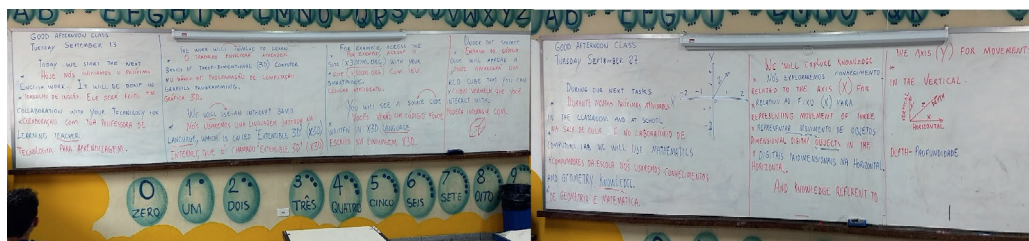 ABCDEFGHIJKLMNOPQRSTUVWXYZ
GOOD AFTERNOON CLASS
TUESDAY SEPTEMBER 13
TODAY WE START THE NEXT
HOJE NÓS INICIAMOS O PRÓXIMO
ENGLISH WORK. IT WILL BE DONE IN
TRABALHO DE INGLÊS. ELE SERÁ FEITO EM
COLLABORATION WITH YOUR TECHNOLOGY FOR
COLABORAÇÃO COM TUA PROFESSORA DE
LEARNING TEACHER.
TECNOLOGIA PARA APRENDIZAGEM.
WE WORK WILL INVOLVE TO LEARN
O TRABALHO ENVOLVERÁ APRENDER
BASICS OF THREE-DIMENSIONAL (3D) COMPUTER
GRAPHICS PROGRAMMING.
GRÁFICA 3D.
WE WILL USE AN INTERNET BASED
NÓS USAREMOS UMA LINGUAGEM BASEADA NA
LANGUAGE, WHICH IS CALLED "EXTENSIBLE 3D" (X3D)
INTERNET, QUE É CHAMADO "EXTENSIBLE 3D" (X3D)
FOR EXAMPLE, ACCESS THE
POR EXEMPLO, ACESSE O
SITE (X3DOM.ORG) WITH YOUR
SITE (X3DOM.ORG) COM SEU
SMARTPHONE.
CELULAR
YOU WILL SEE A SOURCE CODE
VOCÊS VERÃO UM CÓDIGO FONTE
WRITTEN IN X3D LANGUAGE.
ESCRITO NA LINGUAGEM X3D.
UNDER THE
THAT WILL APPEAR A
RED CUBE THAT YOU CAN
CUBO VERMELHO QUE VOCÊ
INTERACT WITH.
PODERÁ INTERAGIR COM.
0 1 2 3 4 5 6 7 8 9
ZERO UM DOIS TRÊS QUATRO CINCO SEIS SETE OITO
GOOD AFTERNOON CLASS
TUESDAY SEPTEMBER 27
DURING OUR NEXT TASKS
DURANTE NOSSAS PRÓXIMAS ATIVIDADES
IN THE CLASSROOM AND AT SCHOOL
NA SALE DE AULA E NO LABORATÓRIO DE
COMPUTERS LAB WE WILL USE MATHEMATICS
COMPUTADORES DA ESCOLA NÓS USAREMOS CONHECIMENTOS
AND GEOMETRY KNOWLEDGE.
DE GEOMETRIA E MATEMÁTICA.
Y
X
WE WILL EXPLORE KNOWLEDGE
NÓS EXPLORAREMOS CONHECIMENTO
RELATED TO THE AXIS (X) FOR
RELATIVO AO EIXO (X) PARA
REPRESENTING MOVEMENT OF THREE
REPRESENTAR MOVIMENTO DE OBJETOS
DIMENSIONAL DIGITAL OBJECTS IN THE
DIGITAIS TRIDIMENSIONAIS NA HORIZONTAL.
HORIZONTAL.
AND KNOWLEDGE REFERENT TO
THE AXIS (Y) FOR MOVEMENT
IN THE VERTICAL.
HORIZONTAL
DEPTH - PROFUNDIDADE